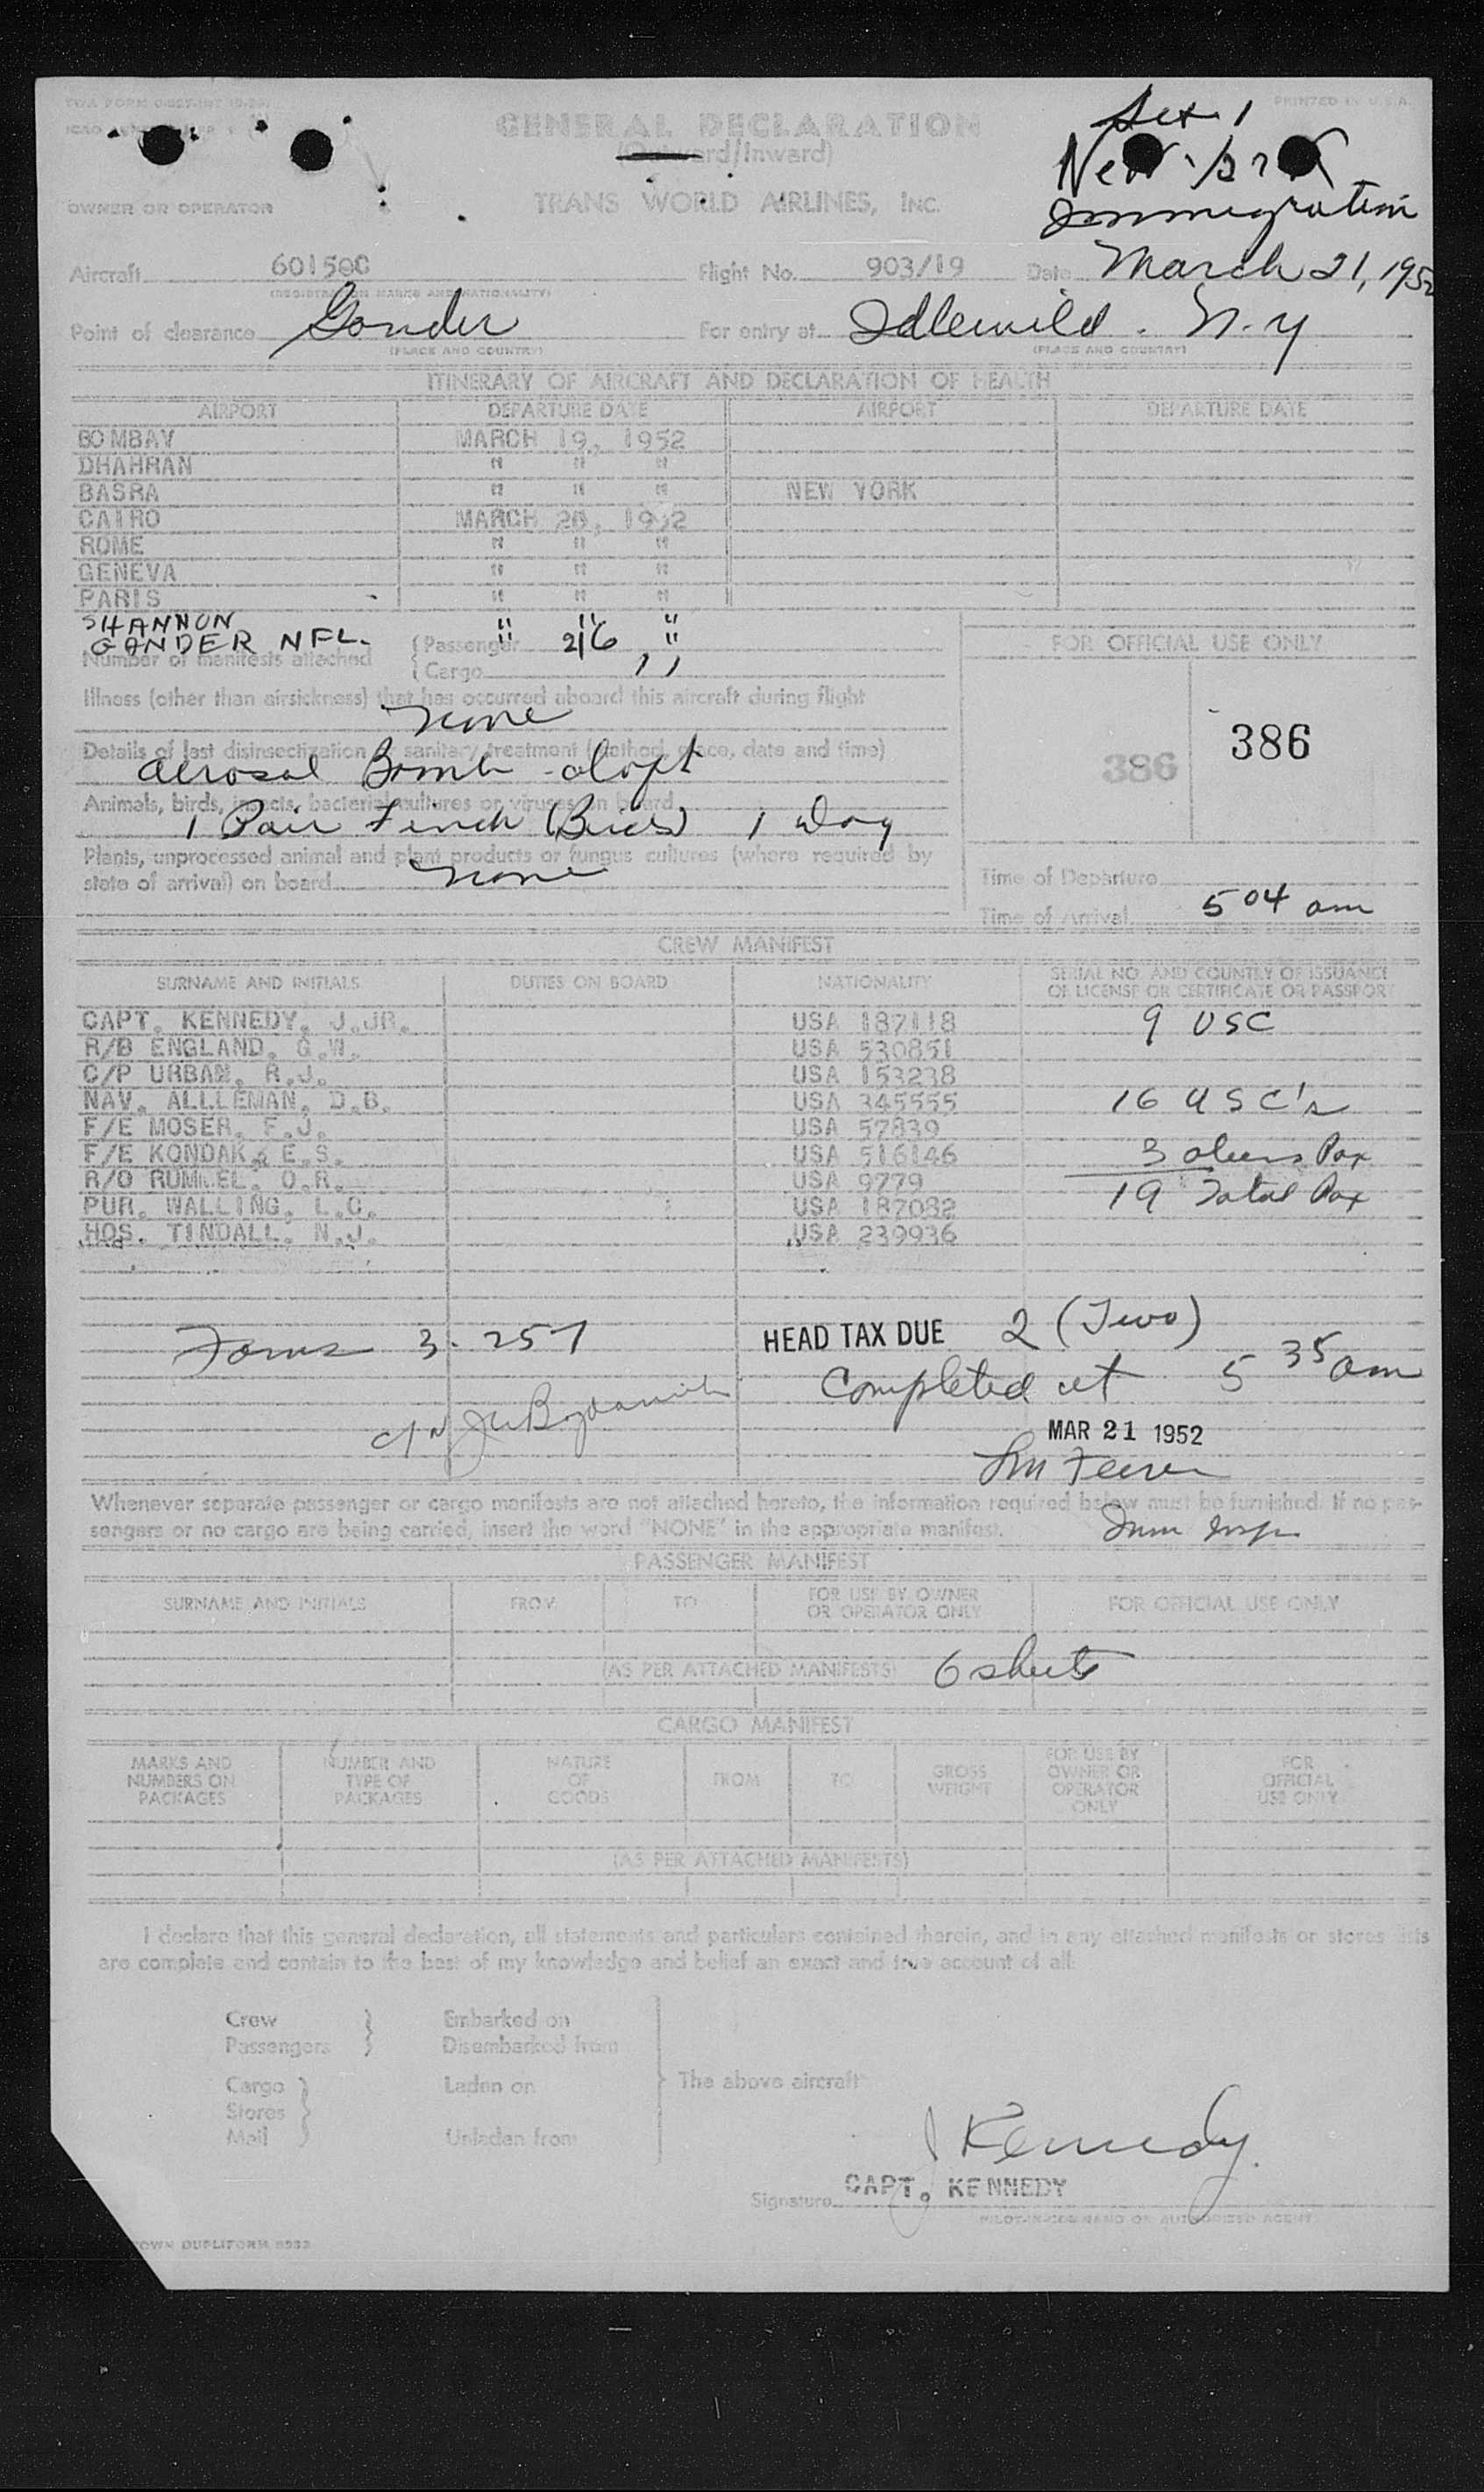 PRINTED IN U.S.A.
GENERAL DECLARATION
Set 1
(Outward/Inward)
New York
Immigration
OWNER OR OPERATOR TRANS WORLD AIRLINES, INC.
Aircraft 60150C Flight No. 903/19 Date March 21, 1952
(REGISTRATION MARKS AND NATIONALITY)
Point of clearance Gander For entry at Idlewild. N.Y
(PLACE AND COUNTRY) (PLACE AND COUNTRY)
ITINERARY OF AIRCRAFT AND DECLARATION OF HEALTH
AIRPORT DEPARTURE DATE AIRPORT DEPARTURE DATE
BOMBAY MARCH 19, 1952
DHAHRAN " " "
BASRA " " " NEW YORK
CAIRO MARCH 20, 1952
ROME " " "
GENEVA " " "
PARIS " " "
SHANNON " " "
GANDER NFL. " 21 "
Number of manifests attached (Passenger 6
(Cargo 11
FOR OFFICIAL USE ONLY
Illness (other than airsickness) that has occurred aboard this aircraft during flight
none
386 386
Details of last disinsectization or sanitary treatment (method, place, date and time)
Aerosol Bomb
Animals, birds, insects, bacterial cultures or viruses on board
1 Pair Finch (Birds) 1 Dog
Plants, unprocessed animal and plant products or fungus cultures (where required by
state of arrival) on board none
Time of Departure
Time of Arrival 5 04 am
CREW MANIFEST
SURNAME AND INITIALS DUTIES ON BOARD NATIONALITY SERIAL NO. AND COUNTRY OF ISSUANCE
OF LICENSE OR CERTIFICATE OR PASSPORT
CAPT. KENNEDY, J.JR. USA 187118 9 USC
R/B ENGLAND, G.W. USA 530851
C/P URBAN, R.J. USA 153238
NAV. ALLLEMAN, D.B. USA 345555 16 USC's
F/E MOSER, F.J. USA 57839
F/E KONDAK, E.S. USA 516146 3 aliens Pax
R/O RUMMEL, O.R. USA 9779 19 Total Pax
PUR. WALLING, L.C. USA 187082
HOS. TINDALL, N.J. USA 239936
Forms 3-257 HEAD TAX DUE 2 (Two)
Completed at 5 35 am
MAR 21 1952
Imm Insp
Whenever separate passenger or cargo manifests are not attached hereto, the information required below must be furnished. If no pas-
sengers or no cargo are being carried, insert the word "NONE" in the appropriate manifest.
PASSENGER MANIFEST
SURNAME AND INITIALS FROM TO FOR USE BY OWNER
OR OPERATOR ONLY FOR OFFICIAL USE ONLY
(AS PER ATTACHED MANIFESTS) 6 sheets
CARGO MANIFEST
MARKS AND
NUMBERS ON
PACKAGES NUMBER AND
TYPE OF
PACKAGES NATURE
OF
GOODS FROM TO GROSS
WEIGHT FOR USE BY
OWNER OR
OPERATOR
ONLY FOR
OFFICIAL
USE ONLY
(AS PER ATTACHED MANIFESTS)
I declare that this general declaration, all statements and particulars contained therein, and in any attached manifests or stores lists
are complete and contain to the best of my knowledge and belief an exact and true account of all:
Crew Embarked on
Passengers Disembarked from
Cargo Laden on The above aircraft
Stores
Mail Unladen from
J Kennedy.
Signature CAPT. KENNEDY
PILOT-IN-COMMAND OR AUTHORIZED AGENT